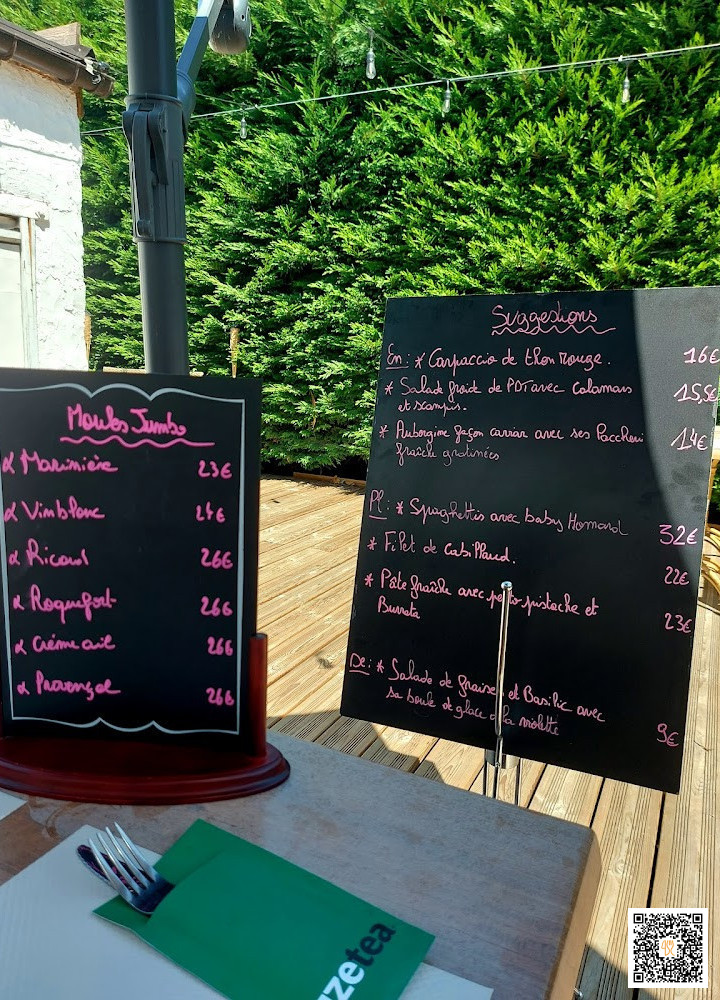 Moules Jumbo
Marinière 23€
Vin blanc 24€
Ricard 26€
Roquefort 26€
Crème ail 26€
Provençal 26€
Suggestions
En: * Carpaccio de thon rouge. 16€
* Salade froide de avec Calamars 15,5€
et scampis.
* Aubergine façon caviar avec ses Paccheri 14€
fraîche gratinées
Pl: * Spaghettis avec baby Homard 32€
* Filet de Cabillaud. 22€
* Pâte fraîche avec pesto pistache et
Burrata 23€
De: * Salade de fraise et Basilic avec
sa boule de glace à la violette 9€
uzetea